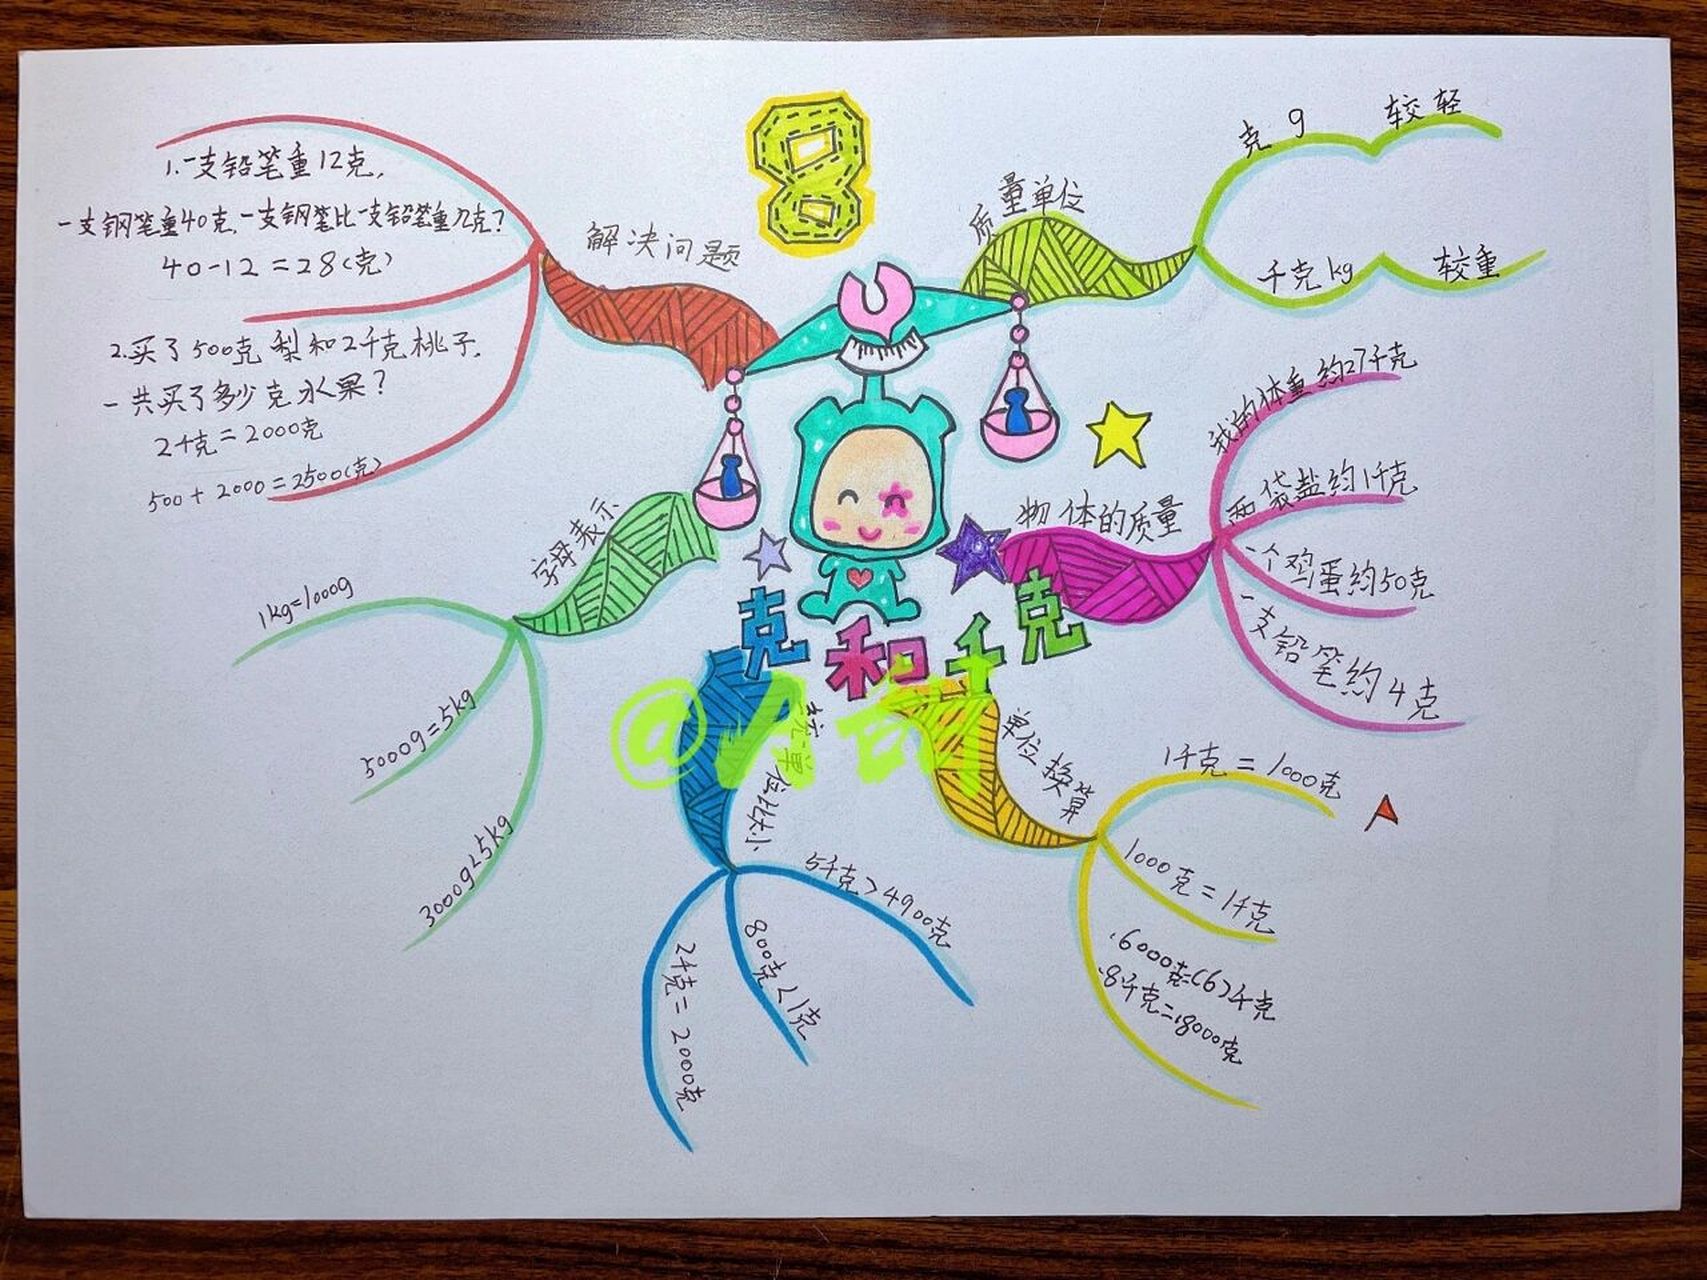 8
克和千克
质量单位
克 g 较轻
千克 kg 较重
物体的质量
我的体重约27千克
两袋盐约1千克
一个鸡蛋约50克
一支铅笔约4克
单位换算
1千克=1000克
1000克=1千克
.6000克=(6)千克
.8千克=.8000克
单位比大小
5千克>4900克
800克<1克
2千克=2000克
字母表示
1kg=1000g
5000g=5kg
3000g<5kg
解决问题
1.一支铅笔重12克,
一支钢笔重40克.一支钢笔比一支铅笔重几克?
40-12=28(克)
2.买了500克梨和2千克桃子.
一共买了多少克水果?
2千克=2000克
500+2000=2500(克)